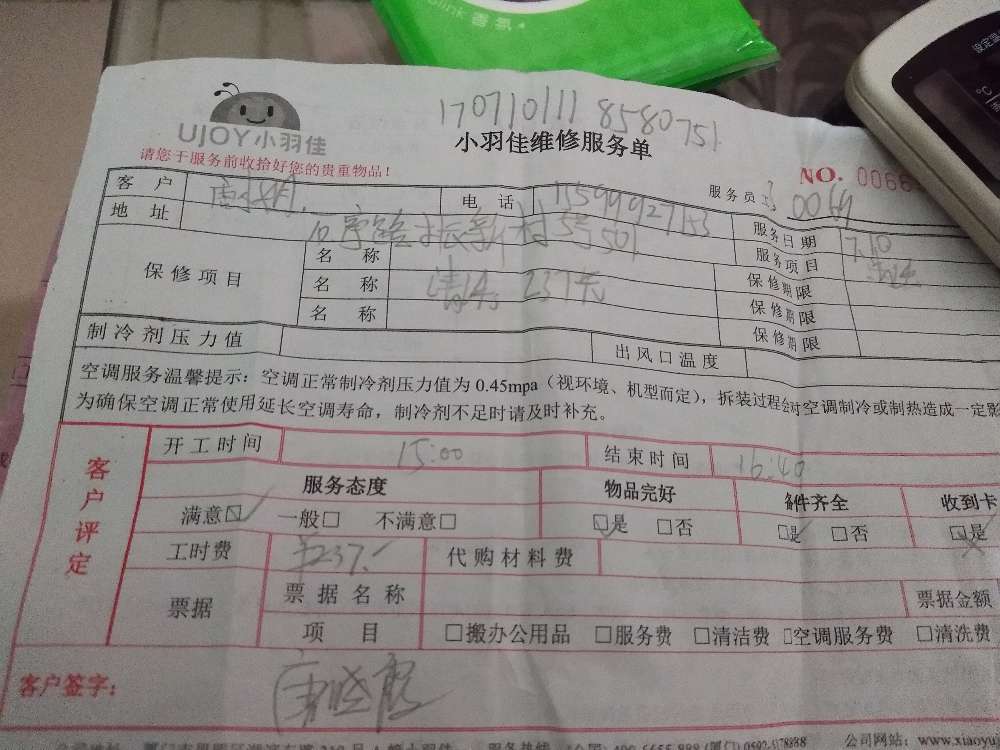 blink 香氛
设定温
℃
1707101118580751
UJOY小羽佳
小羽佳维修服务单
请您于服务前收拾好您的贵重物品!
NO. 0066
服务员 0069
客 户 电 话 15599927153
地 址 振新村5号501 服务日期 7.10
保修项目 名 称 服务项目 清洗
名 称 清洗 237元 保修期限
名 称 保修期限
保修期限
制冷剂压力值 出风口温度
空调服务温馨提示：空调正常制冷剂压力值为 0.45mpa（视环境、机型而定），拆装过程会对空调制冷或制热造成一定影
为确保空调正常使用延长空调寿命，制冷剂不足时请及时补充。
客户评定
开工时间 15:00 结束时间 16:40
服务态度 物品完好 备件齐全 收到卡
满意☑ 一般□ 不满意□ ☑是 □否 ☑是 □否 □是
工时费 237 代购材料费
票据 票据名称 票据金额
项 目 □搬办公用品 □服务费 □清洁费 □空调服务费 □清洗费
客户签字：
公司网站：www.xiaoyu